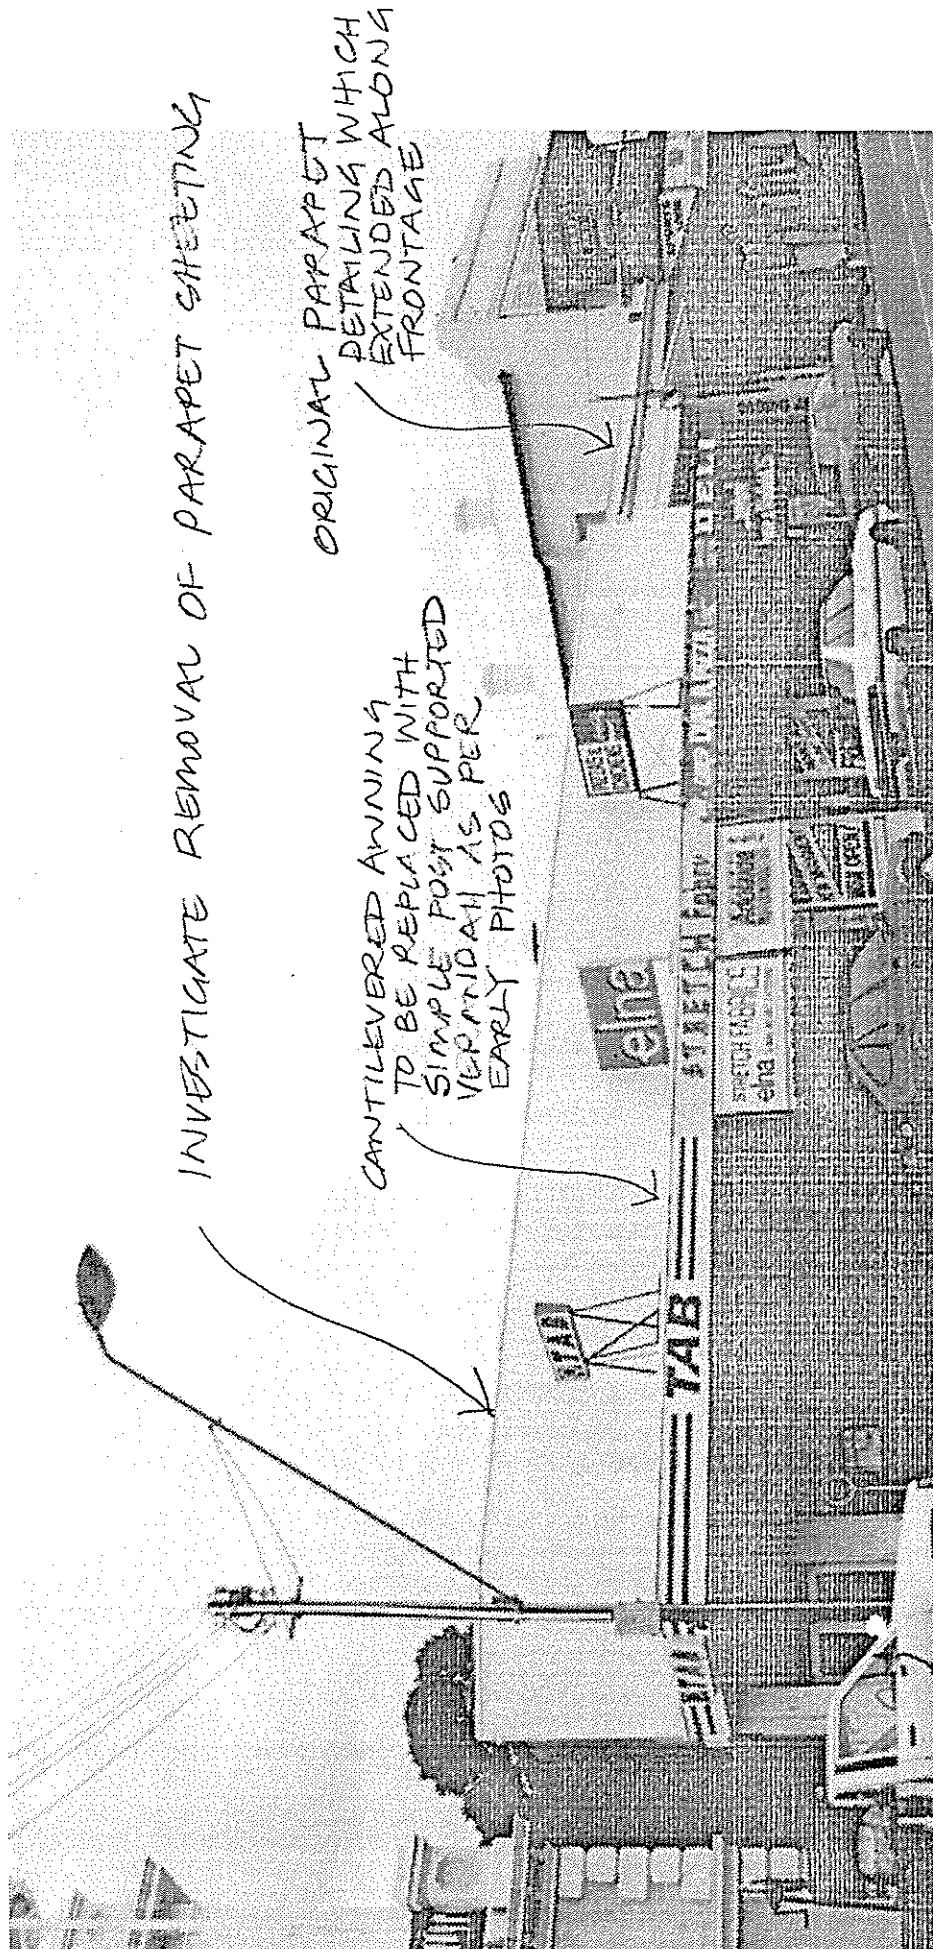 INVESTIGATE REMOVAL OF PARAPET SHEETING
ORIGINAL PARAPET
DETAILING WHICH
EXTENDED ALONG
FRONTAGE
CANTILEVERED AWNING
TO BE REPLACED WITH
SIMPLE POST SUPPORTED
VERANDAH AS PER
EARLY PHOTOS
elna
TAB
TAB
STRETCH Fabric
STRETCH FABRICS
elna
NOW OPEN